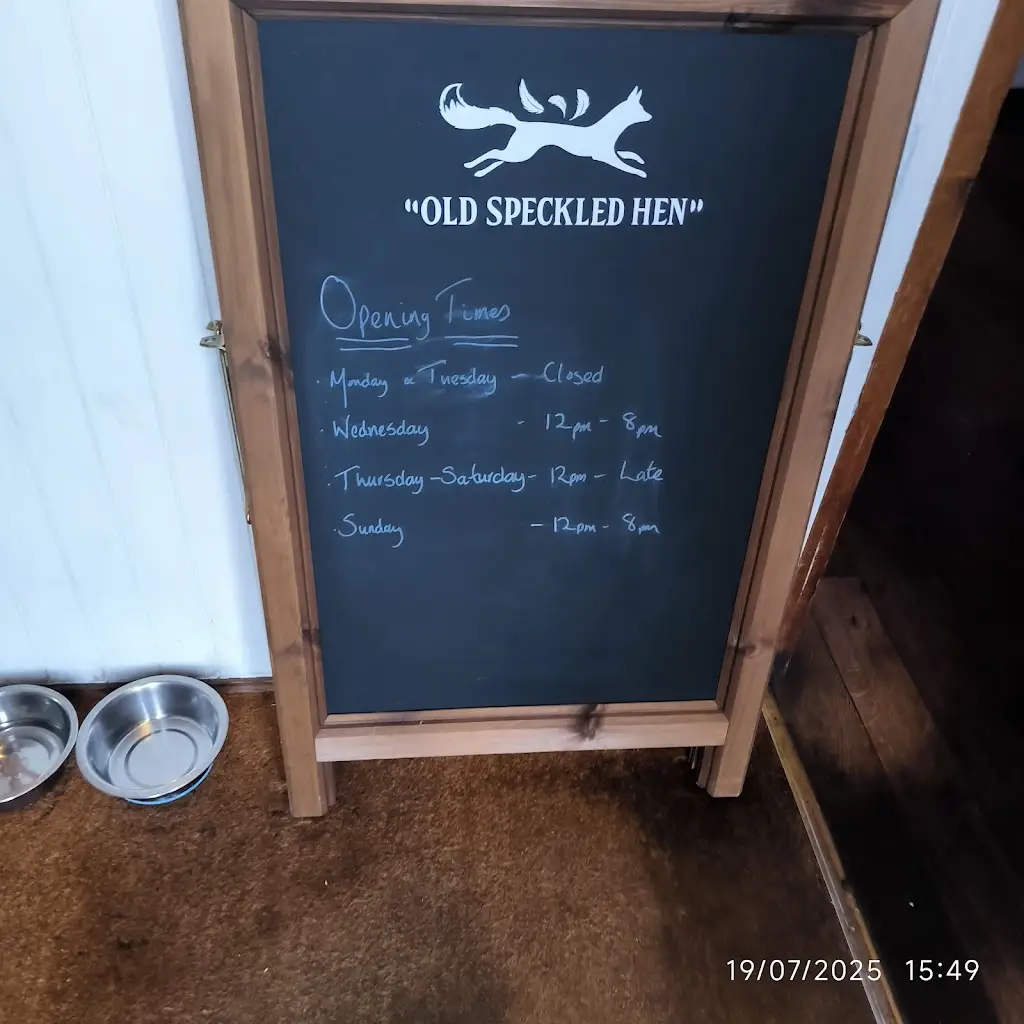 "OLD SPECKLED HEN"
Opening Times
· Monday & Tuesday - Closed
· Wednesday - 12pm - 8pm
· Thursday - Saturday - 12pm - Late
· Sunday - 12pm - 8pm
19/07/2025 15:49